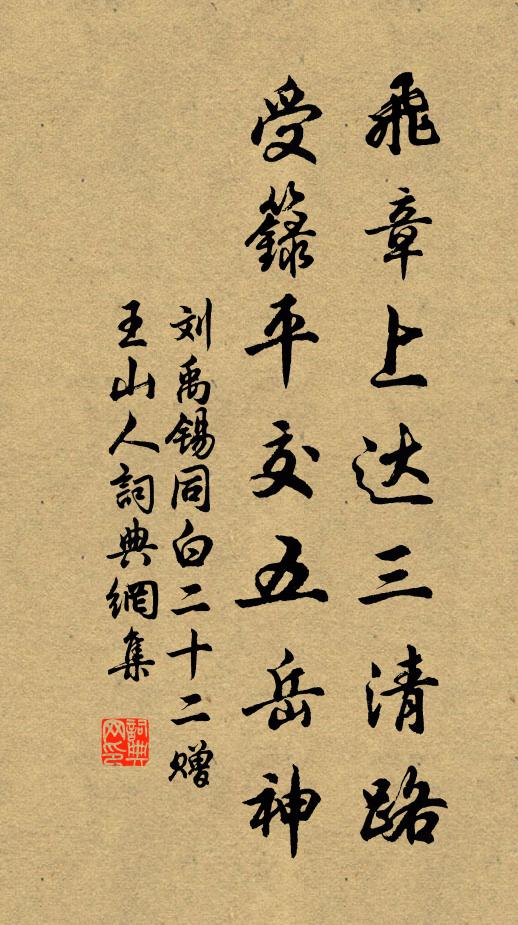 飛章上达三清路
受籙平交五岳神
刘禹锡同白二十二赠
王山人詞典網集
詞典
网印